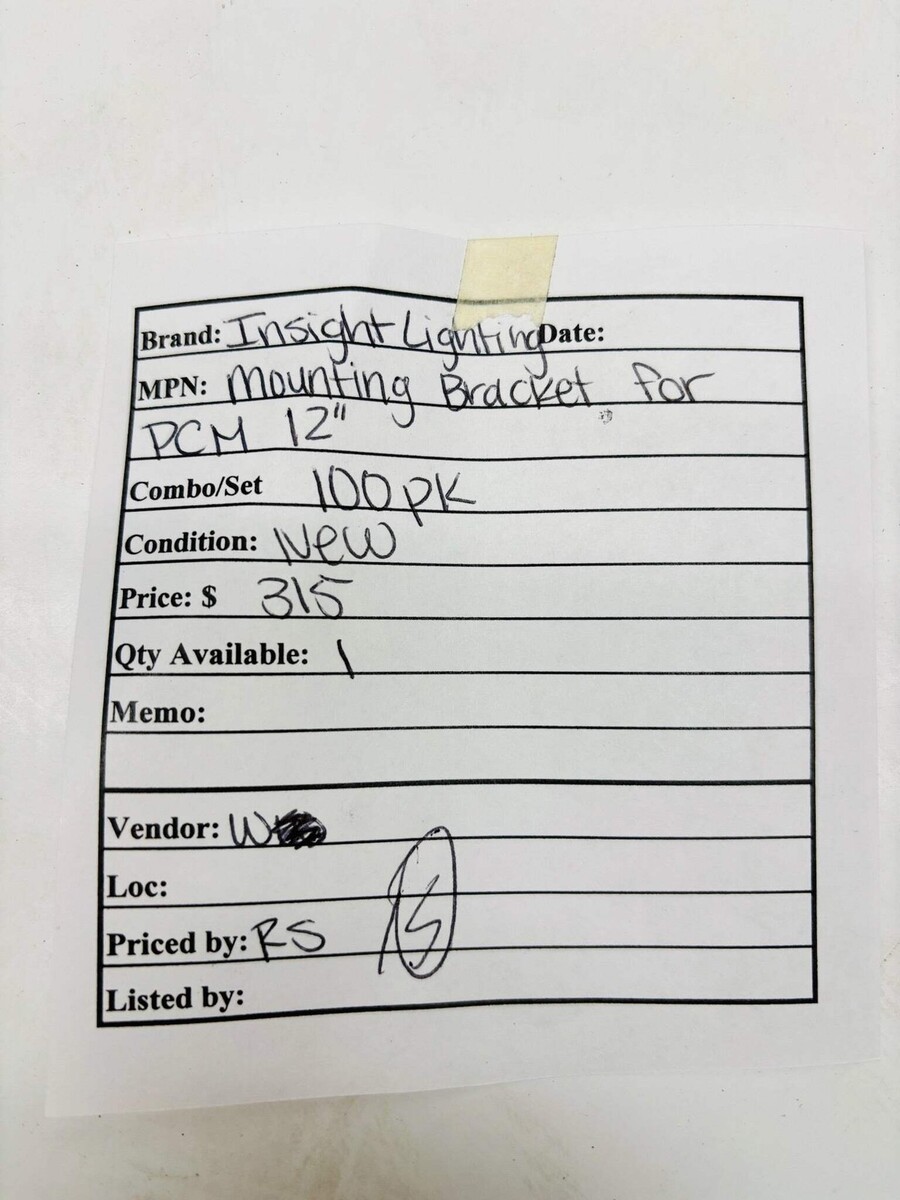 Brand: Insight Lighting Date:
MPN: Mounting Bracket for
PCM 12"
Combo/Set 100 pk
Condition: New
Price: $ 315
Qty Available: 1
Memo:
Vendor: W
Loc:
Priced by: RS
Listed by: